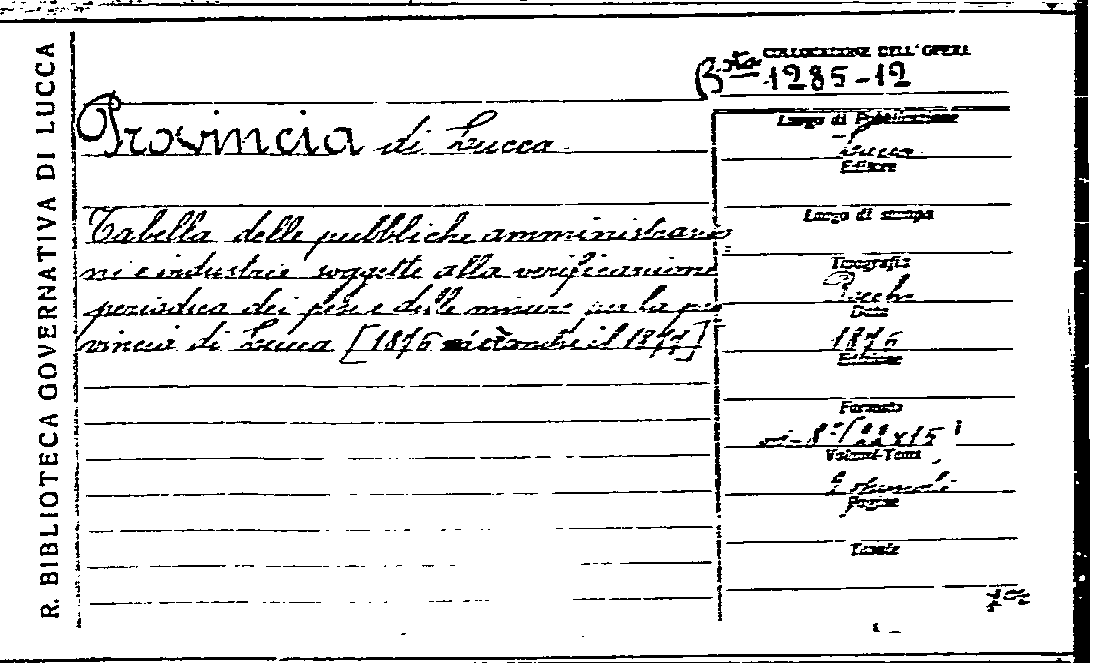 R. BIBLIOTECA GOVERNATIVA DI LUCCA
COLLOCAZIONE DELL'OPERA
Bta 1285-12
Provincia di Lucca
Tabella delle pubbliche amministrazio=
ni e industrie soggette alla verificazione
periodica dei pesi e delle misure per la pro
vincia di Lucca [1876 il 1877]
Luogo di Pubblicazione
Lucca
Editore
Luogo di stampa
Tipografia
Rocchi
Data
1876
Edizione
Formato
in-8° (22x15)
Volumi-Tomi
Pagine
Tavole